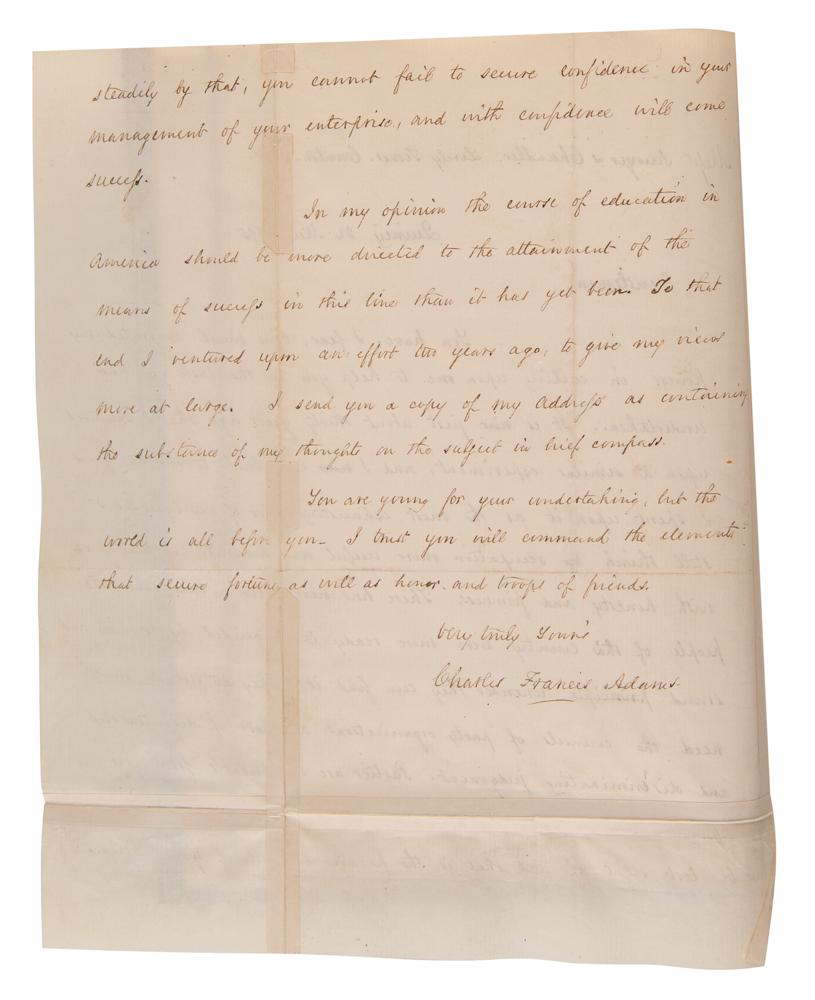 steadily by that, you cannot fail to secure confidence in your
management of your enterprise, and with confidence will come
success.
In my opinion the course of education in
America should be more directed to the attainment of the
means of success in this line than it has yet been. To that
end I ventured upon an effort two years ago, to give my views
more at large. I send you a copy of my Address as containing
the substance of my thoughts on the subject in brief compass.
You are young for your undertaking, but the
world is all before you. I trust you will command the elements
that secure fortune, as well as honor and troops of friends.
Very truly Yours
Charles Francis Adams.